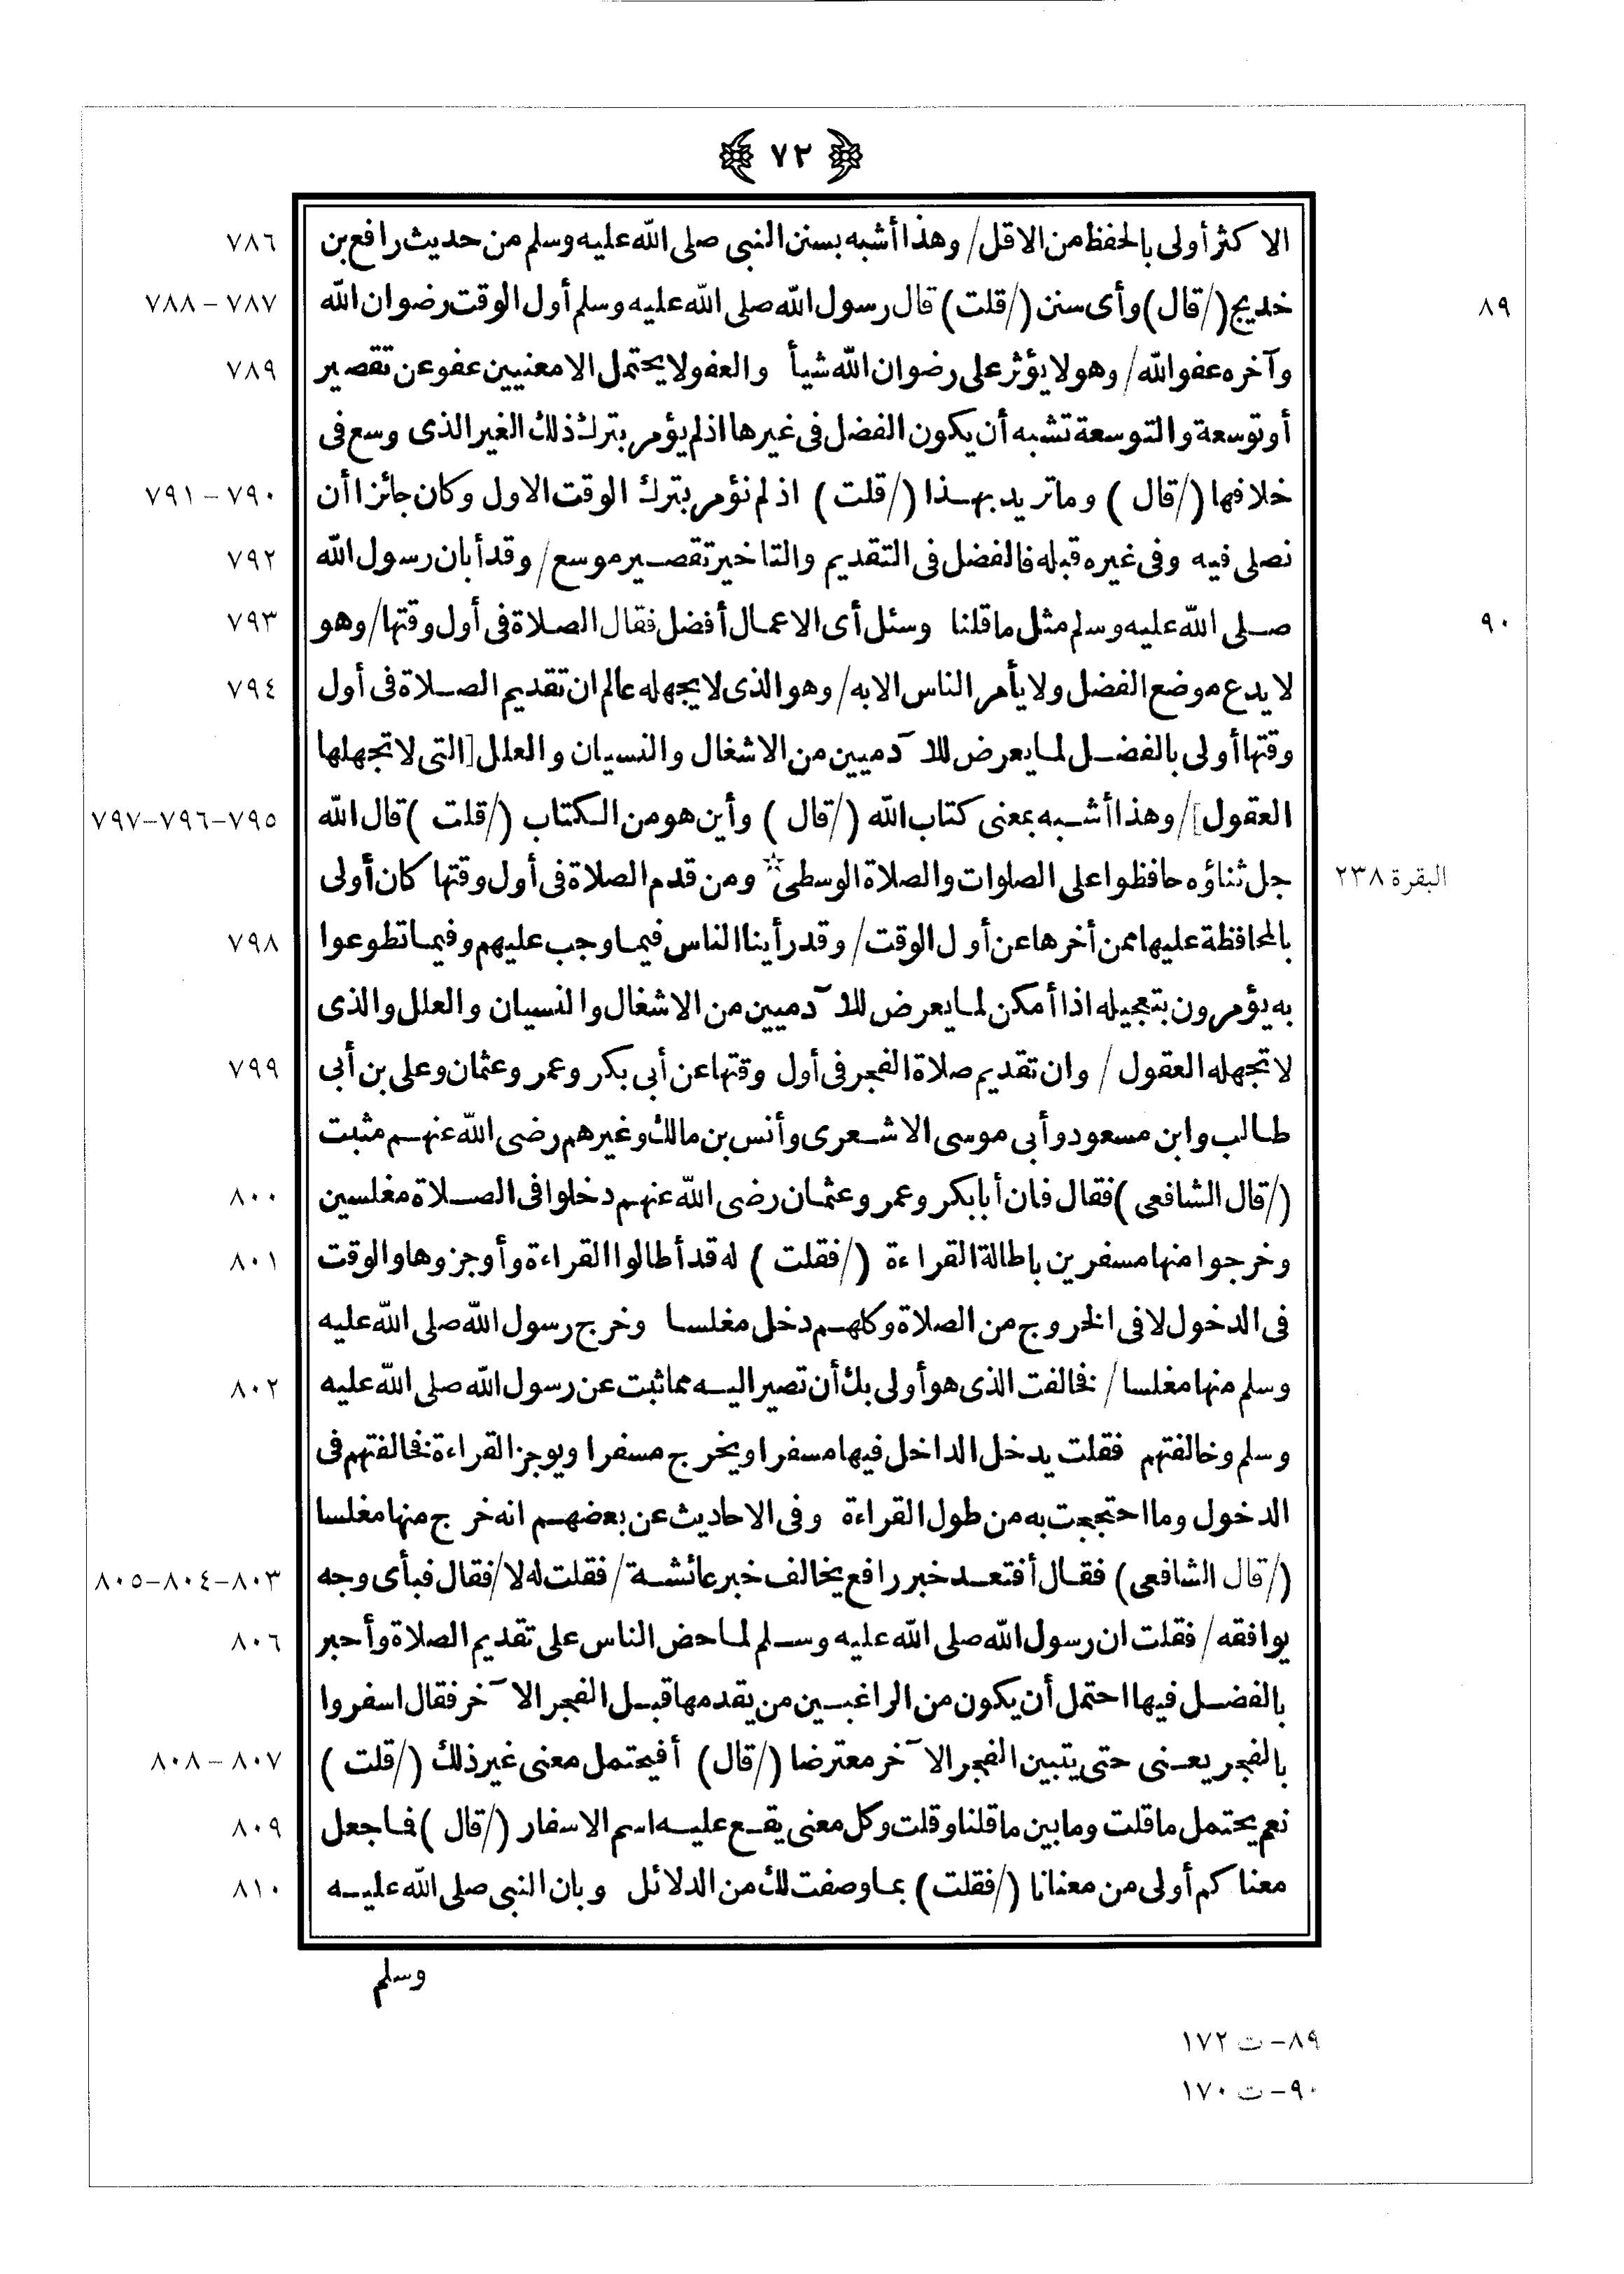 ٧٢
الاكثر أولى بالحفظ من الاقل/ وهذا أشبه بسنن النبى صلى الله عليه وسلم من حديث رافع بن ٧٨٦
٨٩ خديج (/قال) وأى سنن (/قلت) قال رسول الله صلى الله عليه وسلم أول الوقت رضوان الله ٧٨٧ - ٧٨٨
وآخره عفو الله/ وهو لا يؤثر على رضوان الله شيأ والعفو لا يحتمل الا معنيين عفو عن تقصير ٧٨٩
أو توسعة والتوسعة تشبه أن يكون الفضل فى غيرها اذ لم يؤمر بترك ذلك الغير الذى وسع فى
خلافها (/قال) وما تريد بهذا (/قلت) اذ لم نؤمر بترك الوقت الاول وكان جائزا أن ٧٩٠ - ٧٩١
نصلى فيه وفى غيره قبله فالفضل فى التقديم والتاخير تقصير موسع/ وقد أبان رسول الله ٧٩٢
٩٠ صلى الله عليه وسلم مثل ما قلنا وسئل أى الاعمال أفضل فقال الصلاة فى أول وقتها/ وهو ٧٩٣
لا يدع موضع الفضل ولا يأمر الناس الا به/ وهو الذى لا يجهله عالم ان تقديم الصلاة فى أول ٧٩٤
وقتها أولى بالفضل لما يعرض للآدميين من الاشغال والنسيان والعلل [التى لا تجهلها
العقول]/ وهذا أشبه بمعنى كتاب الله (/قال) وأين هو من الكتاب (/قلت) قال الله ٧٩٥-٧٩٦-٧٩٧
البقرة ٢٣٨ جل ثناؤه حافظوا على الصلوات والصلاة الوسطى☆ ومن قدم الصلاة فى أول وقتها كان أولى
بالمحافظة عليها ممن أخرها عن أول الوقت/ وقد رأينا الناس فيما وجب عليهم وفيما تطوعوا ٧٩٨
به يؤمرون بتعجيله اذا أمكن لما يعرض للآدميين من الاشغال والنسيان والعلل والذى
لا تجهله العقول/ وان تقديم صلاة الفجر فى أول وقتها عن أبى بكر وعمر وعثمان وعلى بن أبى ٧٩٩
طالب وابن مسعود وأبى موسى الاشعرى وأنس بن مالك وغيرهم رضى الله عنهم مثبت
(/قال الشافعى) فقال فان أبا بكر وعمر وعثمان رضى الله عنهم دخلوا فى الصلاة مغلسين ٨٠٠
وخرجوا منها مسفرين باطالة القراءة (/فقلت) له قد أطالوا القراءة وأوجزوها والوقت ٨٠١
فى الدخول لا فى الخروج من الصلاة وكلهم دخل مغلسا وخرج رسول الله صلى الله عليه
وسلم منها مغلسا/ فخالفت الذى هو أولى بك أن تصير اليه مما ثبت عن رسول الله صلى الله عليه ٨٠٢
وسلم وخالفتهم فقلت يدخل الداخل فيها مسفرا ويخرج مسفرا ويوجز القراءة فخالفتهم فى
الدخول وما احتججت به من طول القراءة وفى الاحاديث عن بعضهم انه خرج منها مغلسا
(/قال الشافعى) فقال أفتعد خبر رافع يخالف خبر عائشة/ فقلت له لا/ فقال فبأى وجه ٨٠٣-٨٠٤-٨٠٥
يوافقه/ فقلت ان رسول الله صلى الله عليه وسلم لما حض الناس على تقديم الصلاة وأخبر ٨٠٦
بالفضل فيها احتمل أن يكون من الراغبين من يقدمها قبل الفجر الآخر فقال اسفروا
بالفجر يعنى حتى يتبين الفجر الآخر معترضا (/قال) أفيحتمل معنى غير ذلك (/قلت) ٨٠٧ - ٨٠٨
نعم يحتمل ما قلت وما بين ما قلنا وقلت وكل معنى يقع عليه اسم الاسفار (/قال) فاجعل ٨٠٩
معناكم أولى من معنانا (/فقلت) بما وصفت لك من الدلائل وبان النبى صلى الله عليه ٨١٠
وسلم
٨٩ - ت ١٧٢
٩٠ - ت ١٧٠